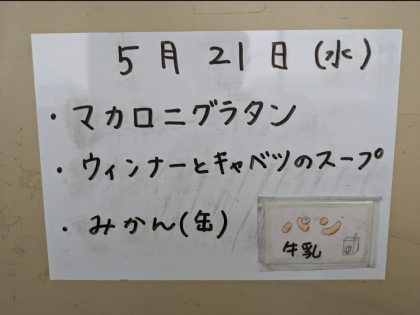 5月21日(水)
・マカロニグラタン
・ウィンナーとキャベツのスープ
・みかん(缶)
牛乳